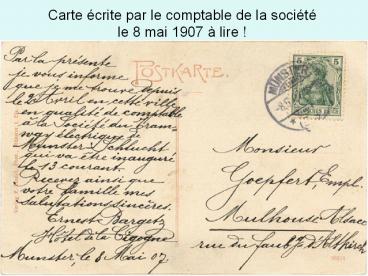 Carte écrite par le comptable de la société
le 8 mai 1907 à lire !
Par la présente
je vous informe
que je me trouve depuis
le Avril en cette ville
en qualité de comptable
à la Société du Tram-
way électrique de
Munster-Schlucht
qui va être inauguré
le 13 courant.
Recevez ainsi que
votre famille mes
salutations sincères.
Ernest
Hôtel à la Cigogne
Munster, le 8 Mai 07
POSTKARTE.
MÜNSTER
5 5
Monsieur
Goepfert, Empl.
Mulhouse Alsace
rue du faubg d'Altkirch